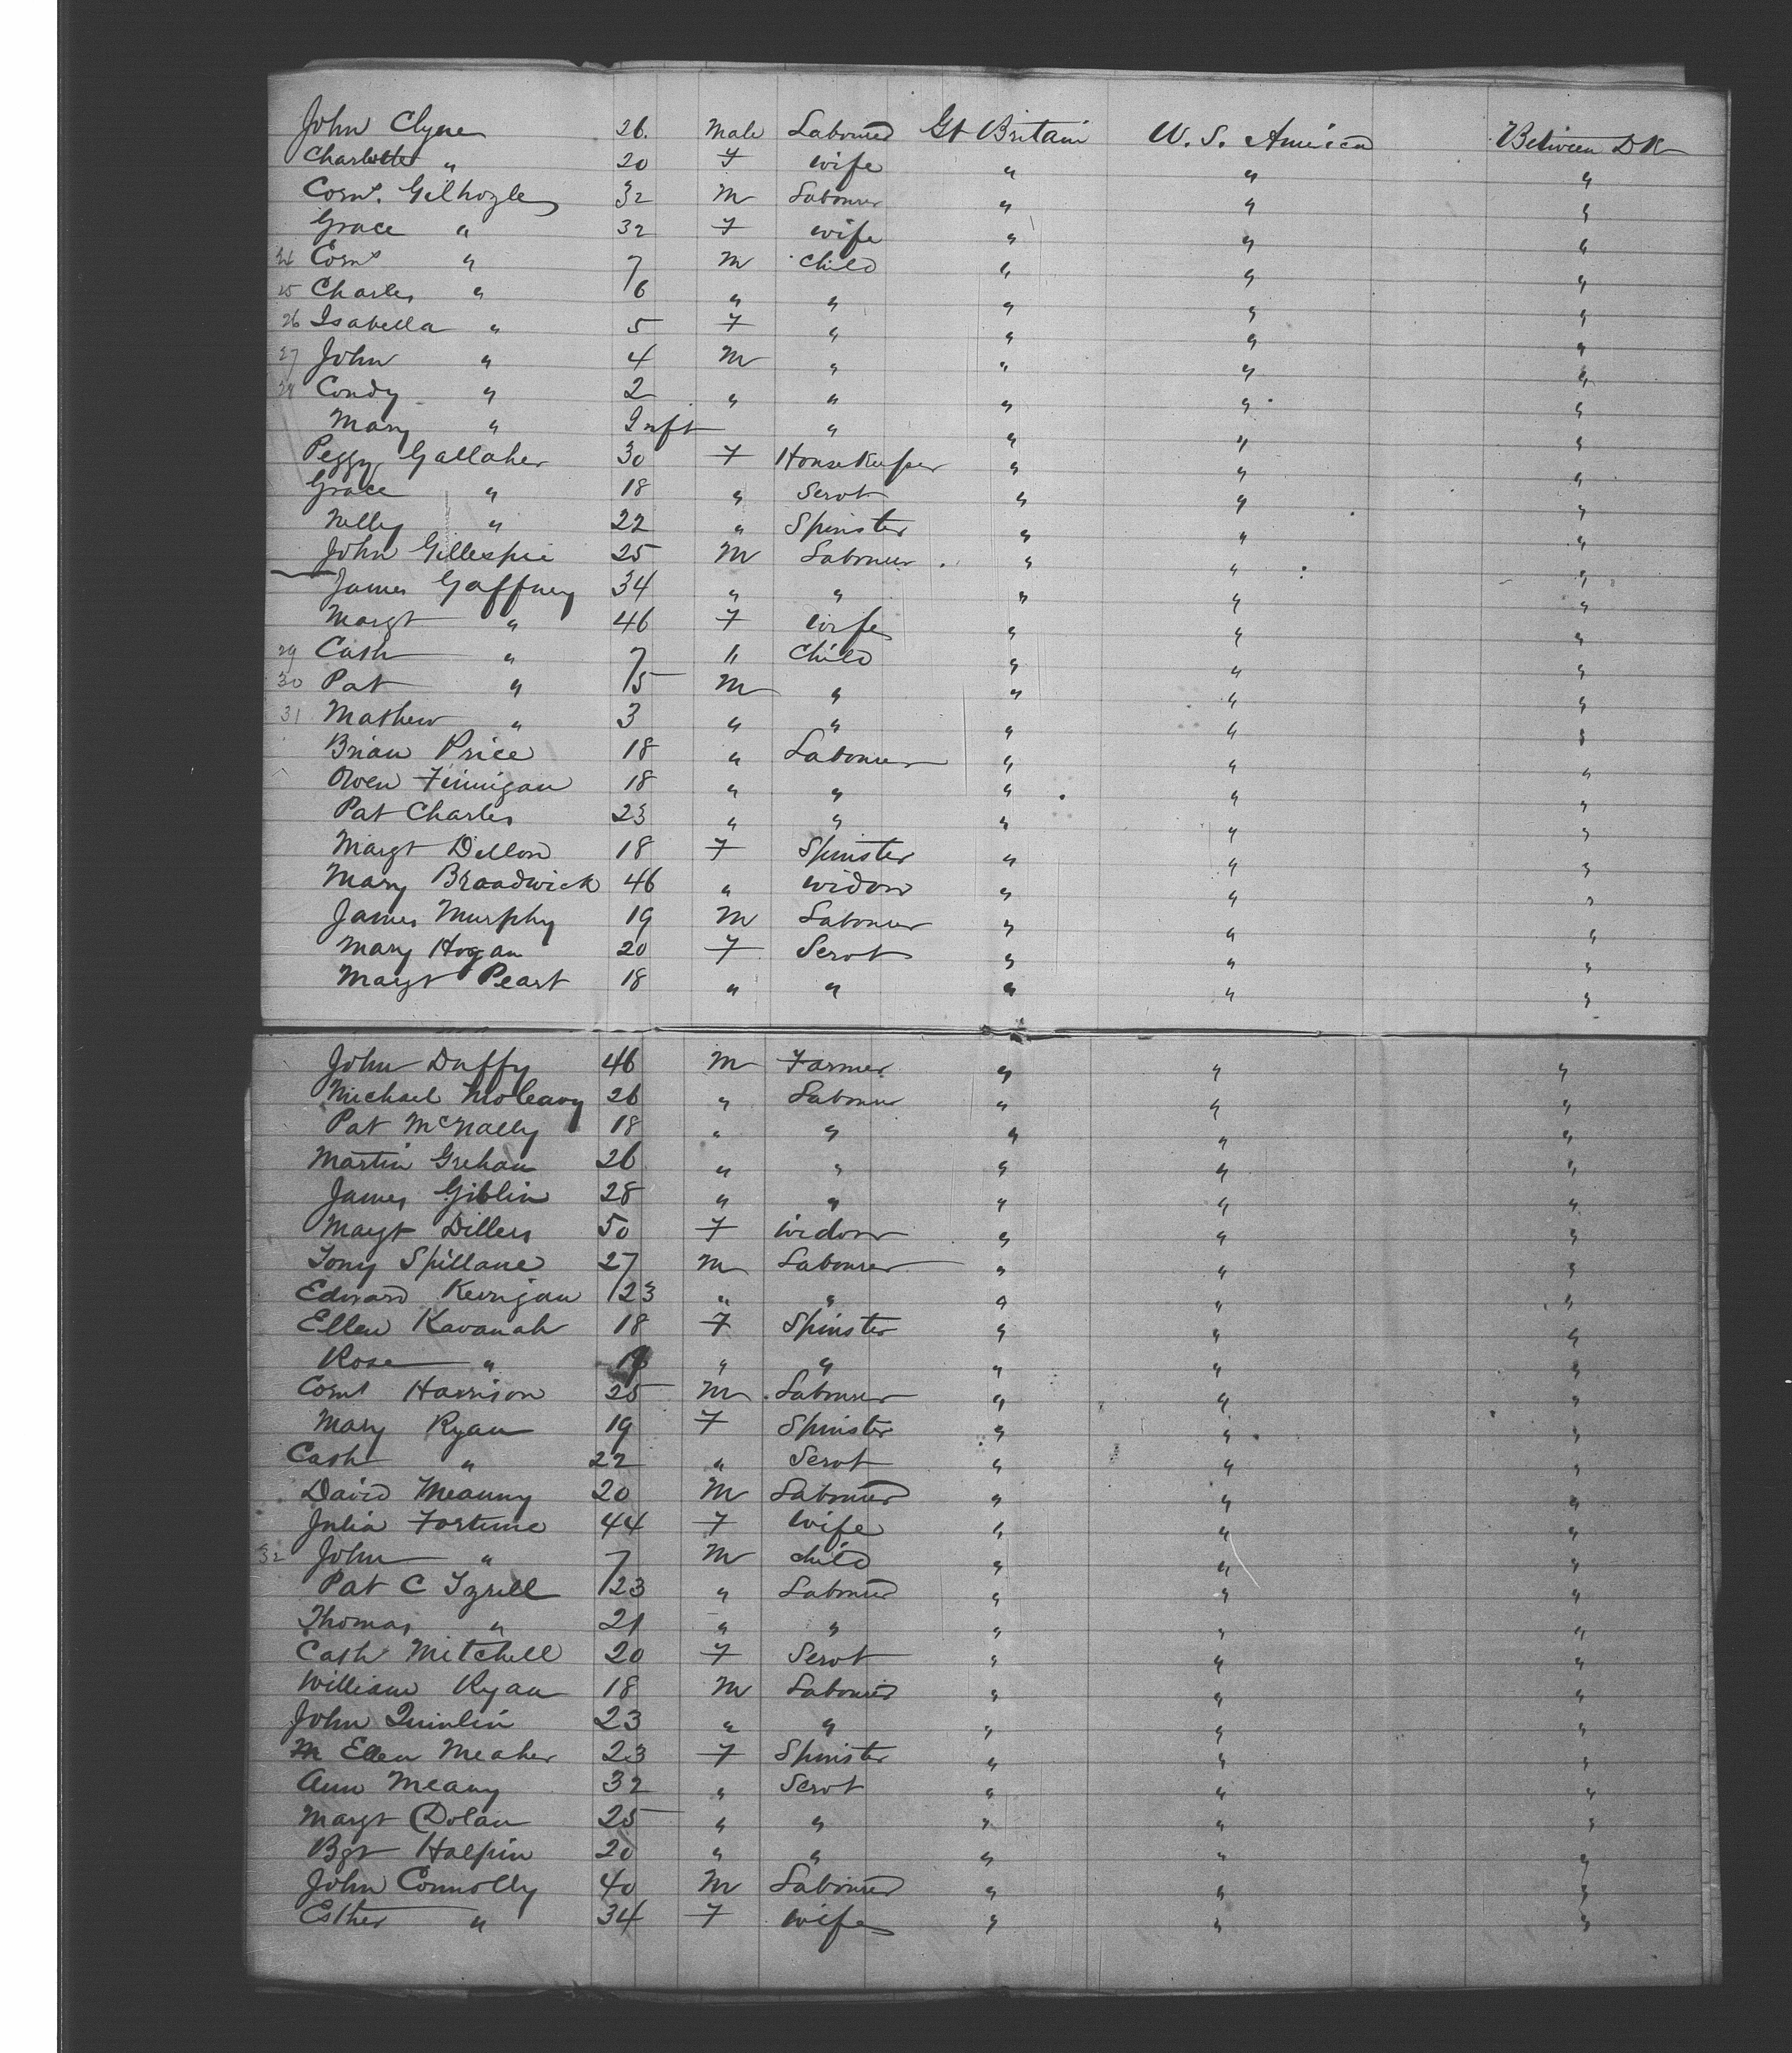 John Clyne 26. Male Labourer Gt Britain U. S. America Between DK
Charlotte " 20 F Wife " " "
Corns. Gilhogley 32 M Labourer " " "
Grace " 32 F Wife " " "
24 Corns " 7 M Child " " "
25 Charles " 6 " " " " "
26 Isabella " 5 F " " " "
27 John " 4 M " " " "
28 Condy " 2 " " " " "
Mary " Inft " " " "
Peggy Gallaher 30 F HouseKeeper " " "
Grace " 18 " Servt " " "
Nelly " 22 " Spinster " " "
John Gillespie 25 M Labourer " " "
James Gaffney 34 " " " " "
Margt " 46 F Wife " " "
29 Cath " 7 " Child " " "
30 Pat " 5 M " " " "
31 Mathew " 3 " " " " "
Brian Price 18 " Labourer " " "
Owen Finnigan 18 " " " " "
Pat Charles 23 " " " " "
Margt Dillon 18 F Spinster " " "
Mary Broadwick 46 " Widow " " "
James Murphy 19 M Labourer " " "
Mary Hogan 20 F Servt " " "
Margt Peart 18 " " " " "
John Duffy 46 M Farmer " " "
Michael 26 " Labourer " " "
Pat McNally 18 " " " " "
Martin Grehan 26 " " " " "
James Giblin 28 " " " " "
Margt Dillers 50 F Widow " " "
Tony Spillane 27 M Labourer " " "
Edward Kerrigan 23 " " " " "
Ellen Kavanah 18 F Spinster " " "
Rose " " " " " "
Corns Harrison 25 M Labourer " " "
Mary Ryan 19 F Spinster " " "
Cath " 22 " Servt " " "
David Meanny 20 M Labourer " " "
Julia Fortune 44 F Wife " " "
32 John " 7 M Child " " "
Pat C Tyrell 23 " Labourer " " "
Thomas " 21 " " " " "
Cath Mitchell 20 F Servt " " "
William Ryan 18 M Labourer " " "
John Quinlin 23 " " " " "
M Ellen Meaher 23 F Spinster " " "
Ann Meany 32 " Servt " " "
Margt Dolan 25 " " " " "
Bgt Halpin 20 " " " " "
John Connolly 40 M Labourer " " "
Esther " 34 F Wife " " "